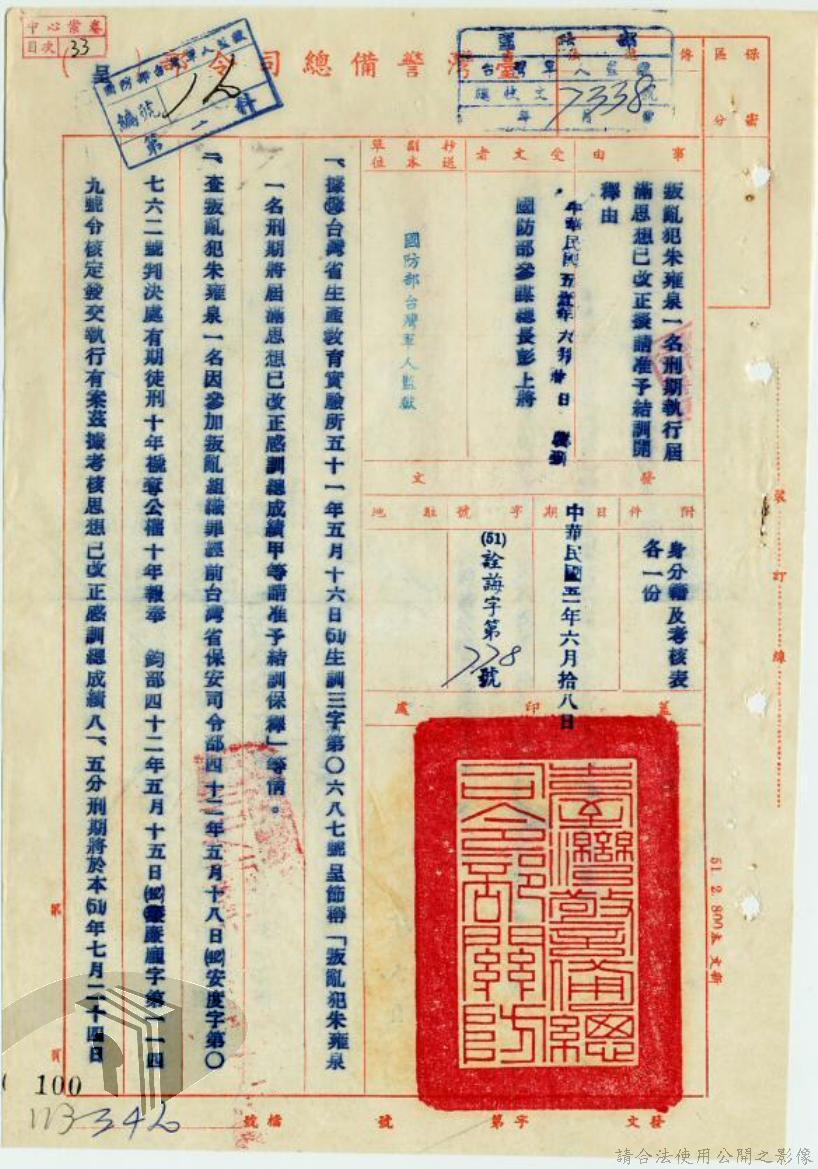 中心常卷
目次 33
臺灣警備總司令部
呈
國防部台灣軍人監獄
編號 12
第二科
7338
保密區分
事由
叛亂犯朱雍泉一名刑期執行屆
滿思想已改正簽請准予結訓開
釋由
受文者
國防部參謀總長彭上將
抄送副本單位
國防部台灣軍人監獄
發文
附件
身分簿及考核表
各一份
日期
中華民國五一年六月拾八日
字號
(51)詮誨字第778號
駐地
蓋印處
臺灣警備總司令部關防
一、據台灣省生產教育實驗所五十一年五月十六日(51)生訓三字第〇六八七號呈節稱「叛亂犯朱雍泉
一名刑期將屆滿思想已改正感訓總成績甲等請准予結訓保釋」等情。
二、查叛亂犯朱雍泉一名因參加叛亂組織罪經前台灣省保安司令部四十二年五月十八日(42)安度字第〇
七六二號判決處有期徒刑十年褫奪公權十年報奉 鈞部四十二年五月十五日(42)廉龐字第一一四
九號令核定發交執行有案茲據考核思想已改正感訓總成績八一、五分刑期將於本(51)年七月二十四日
裝訂線
51. 2. 800本 文新
第 頁
100
113-346
發文 字第 號
檔號
請合法使用公開之影像